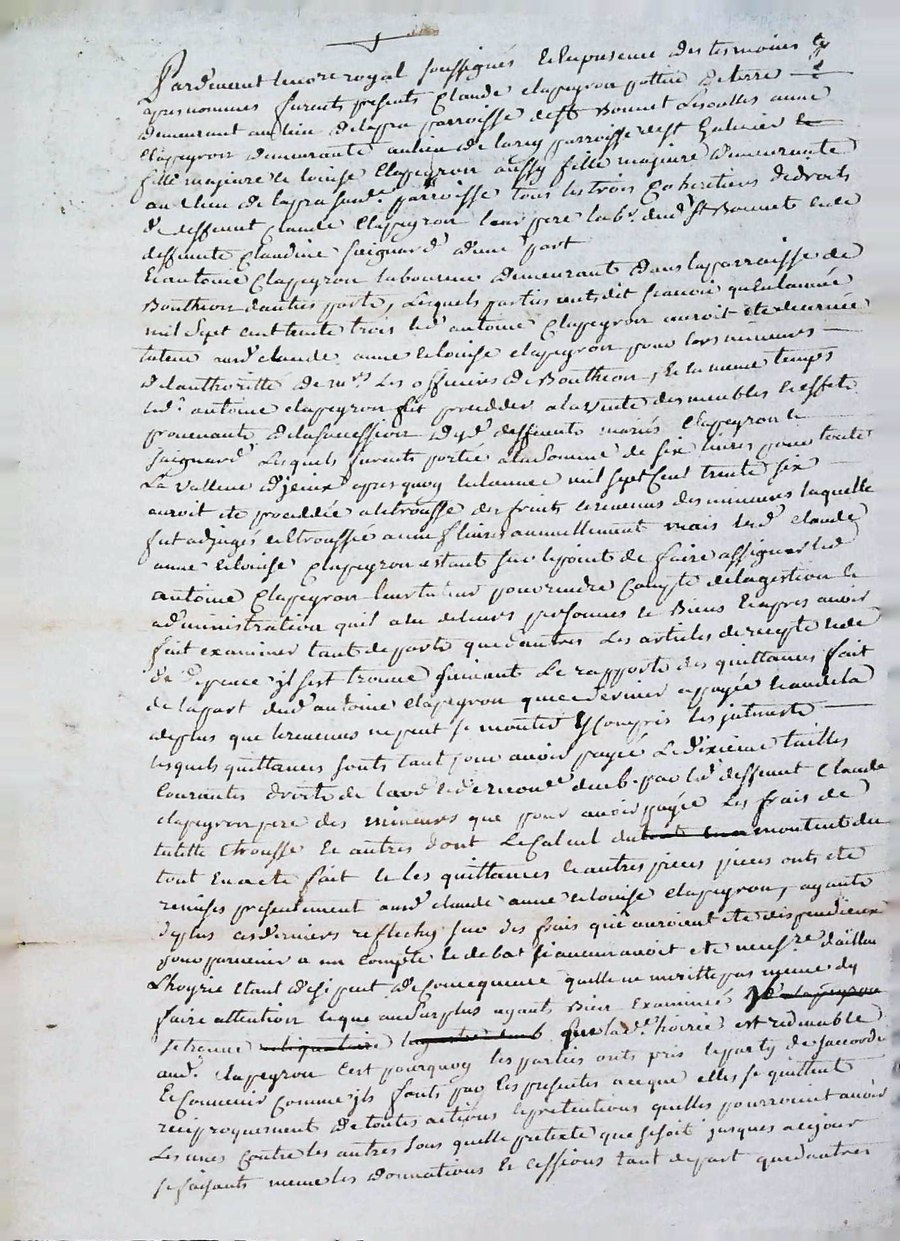 Pardevant le nore royal soussignés et en presence des tesmoins
apres nommes furents presents Claude Clapeyron pottier de terre
demeurant au lieu de lapra parroisse de st Bonnet Lesoulles anne
Clapeyron demeurante au lieu de parroisse de st Galmier et
fille majeure et loüise Clapeyron aussy fille majeure demeurante
au lieu de lapra susd. parroisse tous les trois Coheritiers de droits
de deffunt Claude Clapeyron leur pere labr. dud. st Bonnet et de
deffunte Claudine Saignard d'une part
Et antoine Clapeyron laboureur demeurant dans la parroisse de
Bouthéon d'autre parte, Lesquels parties onts dit scavoir qu'En lannée
mil sept cent trente trois led. antoine Clapeyron auroit ete decerné
tuteur auxd. claude anne et loüise clapeyron pour lors mineurs
de lauthoritté de mrs. Les officiers de Bouthéon, Et en meme temps
led. antoine clapeyron fit proceder a la vente des meubles et effets
provenants de la succession desd. deffunts mariés Clapeyron et
Saignard Lesquels furents portés a la somme de six livres pour toute
La valleur d'jceux apres quoy en lannée mil sept Cent trente six
auroit ete procedée a letrousse des fruits et revenus des mineurs laquelle
fut adjugés et troussée a livres annuellement mais lesd. claude
anne et loüise Clapeyron estant sur le point de faire assigner led.
antoine Clapeyron leur tuteur pour rendre Compte de la gestion et
administration quil a eu de leurs personnes et Biens Et apres avoir
fait examiner tant de parts que d'autres Les articles de recepte et de
de depence jl s'est trouvé suivant Le rapport des quittances fait
de la part dud. antoine clapeyron que ce dernier a payée au dela
de plus que les revenus ne peut se monter y Compris les jnterets
lesquels quittances sonts tant pour avoir payée Le dixieme tailles
Courantes droits de lavd. par led. deffunt Claude
clapeyron pere des mineurs que pour avoir payée Les frais de
tutelle Etrousse et autres dont Le Calcul du montent du
tout En a ete fait et les quittances et autres pieces pieces onts ete
remises presentement auxd. claude anne et loüise Clapeyron, ayants
de plus ces derniers reflechy sur des frais qui auroient ete dispendieux
pour parvenir a un Compte et debat si aucun avoit ete necessre. d'aillieurs
L'hoyrie etant de si peut de Conséquence quelle ne meritte pas meme dy
faire attention et que au surplus ayant Bien Examinés
se trouve que lad. hoirie est redevable
aud. Clapeyron C'est pourquoy les parties onts pris le party de saccorder
Et Convenir comme jls fonts par les presentes a ce que elles se quittent
reciproquement de toutes actions et pretentions quelles pourroient avoir
Les unes contre les autres sous quelle pretexte que se soit jusques a ce jour
se faisants meme les donnations et cessions tant de part que d'autres